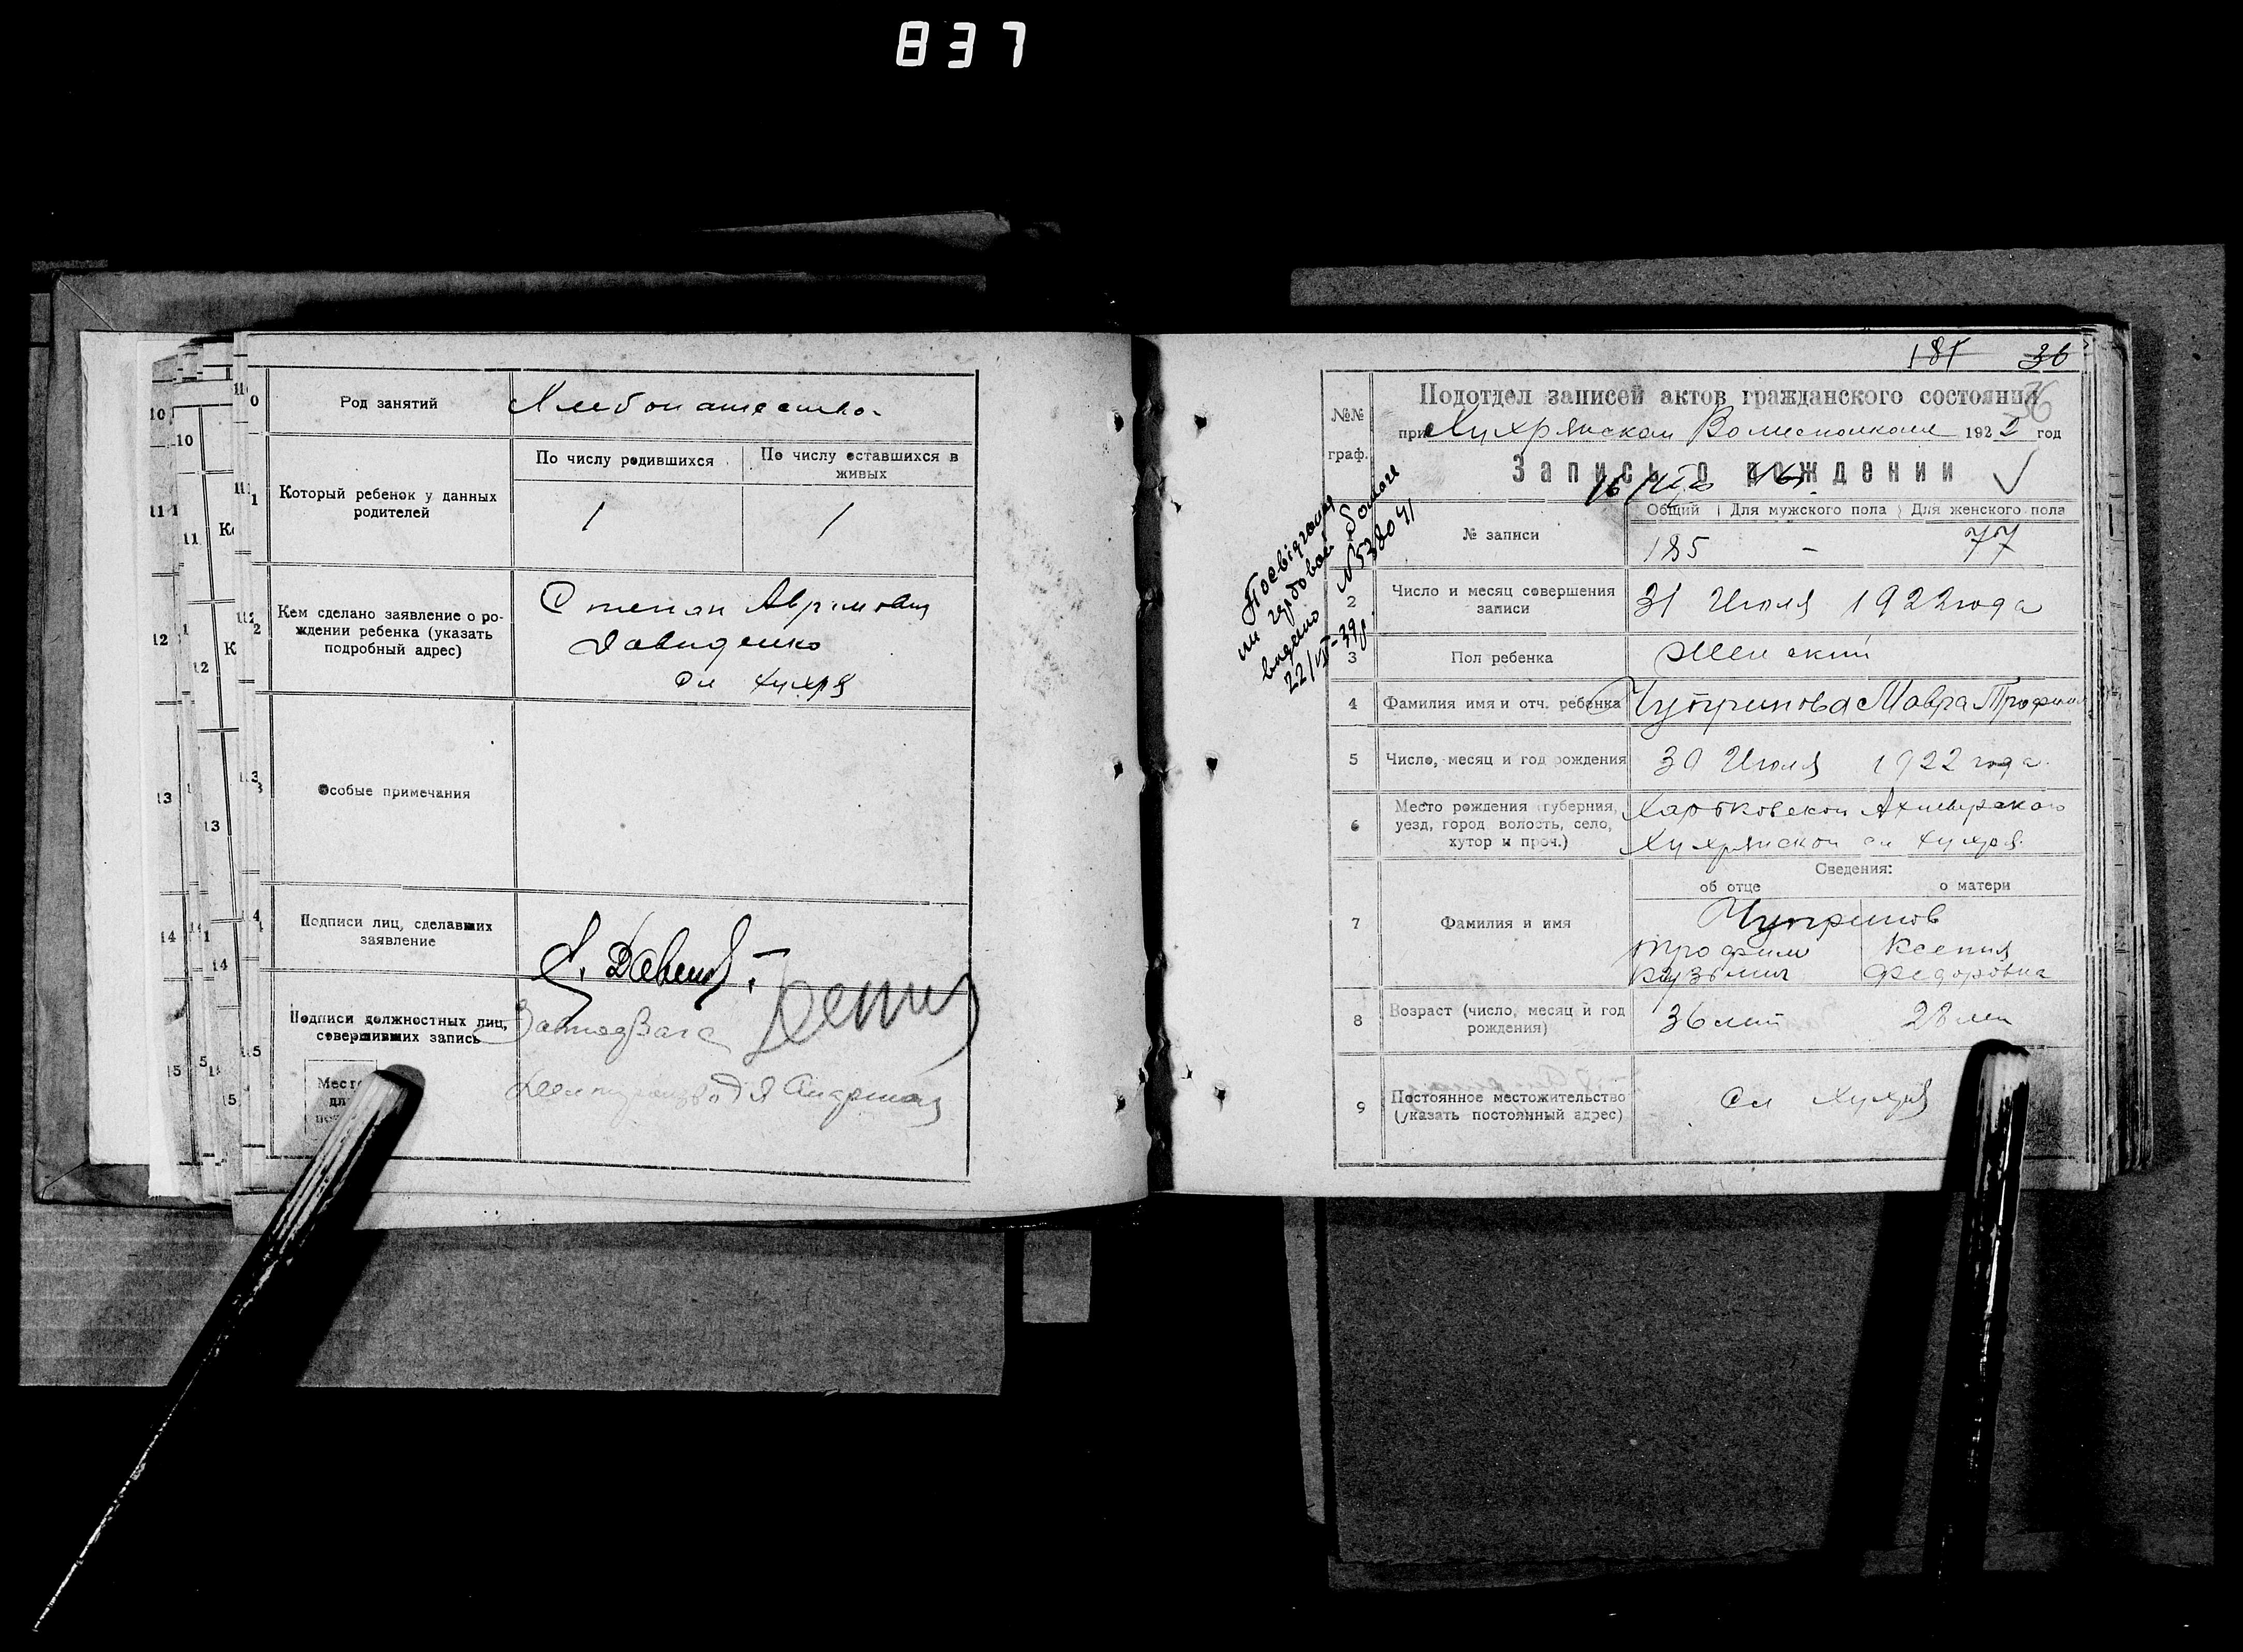 837
Род занятий
Хлебопашество
Который ребенок у данных
родителей
По числу родившихся
По числу оставшихся в
живых
1
1
Кем сделано заявление о ро-
ждении ребенка (указать
подробный адрес)
Степан Аврамович
Давиденко
сл Хухря
Особые примечания
Подписи лиц, сделавших
заявление
Подписи должностных лиц,
совершивших запись
Место
181 36
36
№№
граф.
Подотдел записей актов гражданского состояния
при Хухрянском Волисполкоме 1922 год
Запись о рождении
Общий
Для мужского пола
Для женского пола
№ записи
185
-
77
2
Число и месяц совершения
записи
31 Июля 1922 года
3
Пол ребенка
Женский
4
Фамилия имя и отч. ребенка
Чупринова Мавра Трофим
5
Число, месяц и год рождения
30 Июля 1922 года
6
Место рождения (губерния,
уезд, город волость, село,
хутор и проч.)
Харьковской Ахтырского
Хухрянской сл Хухря
Сведения:
об отце
о матери
7
Фамилия и имя
Чупринов
Трофим
Кузьмич
Ксения
Федоровна
8
Возраст (число, месяц и год
рождения)
36 лет
28 лет
9
Постоянное местожительство
(указать постоянный адрес)
Сл Хухря
на гербовом бомаге
видано N 538041
22/VI-39р.
10
11
12
13
14
15